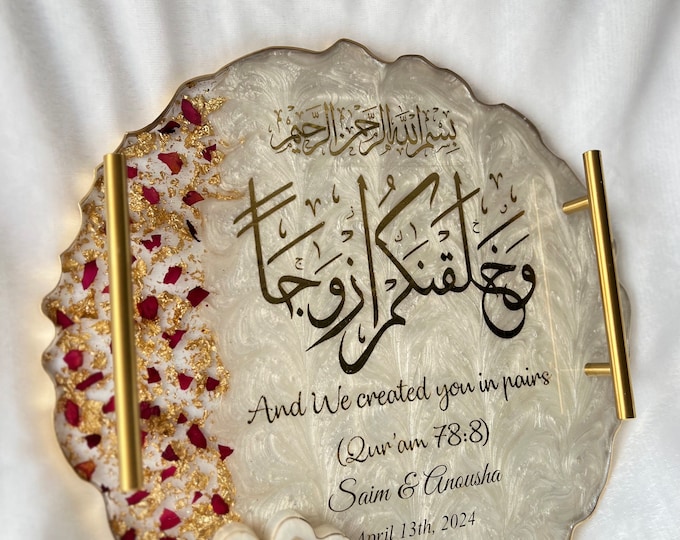 بسم الله الرحمن الرحيم
وَخَلَقْنَكُمْ أَزْوَجًا
And We created you in pairs
(Qur'am 78:8)
Saim & Anousha
April 13th, 2024